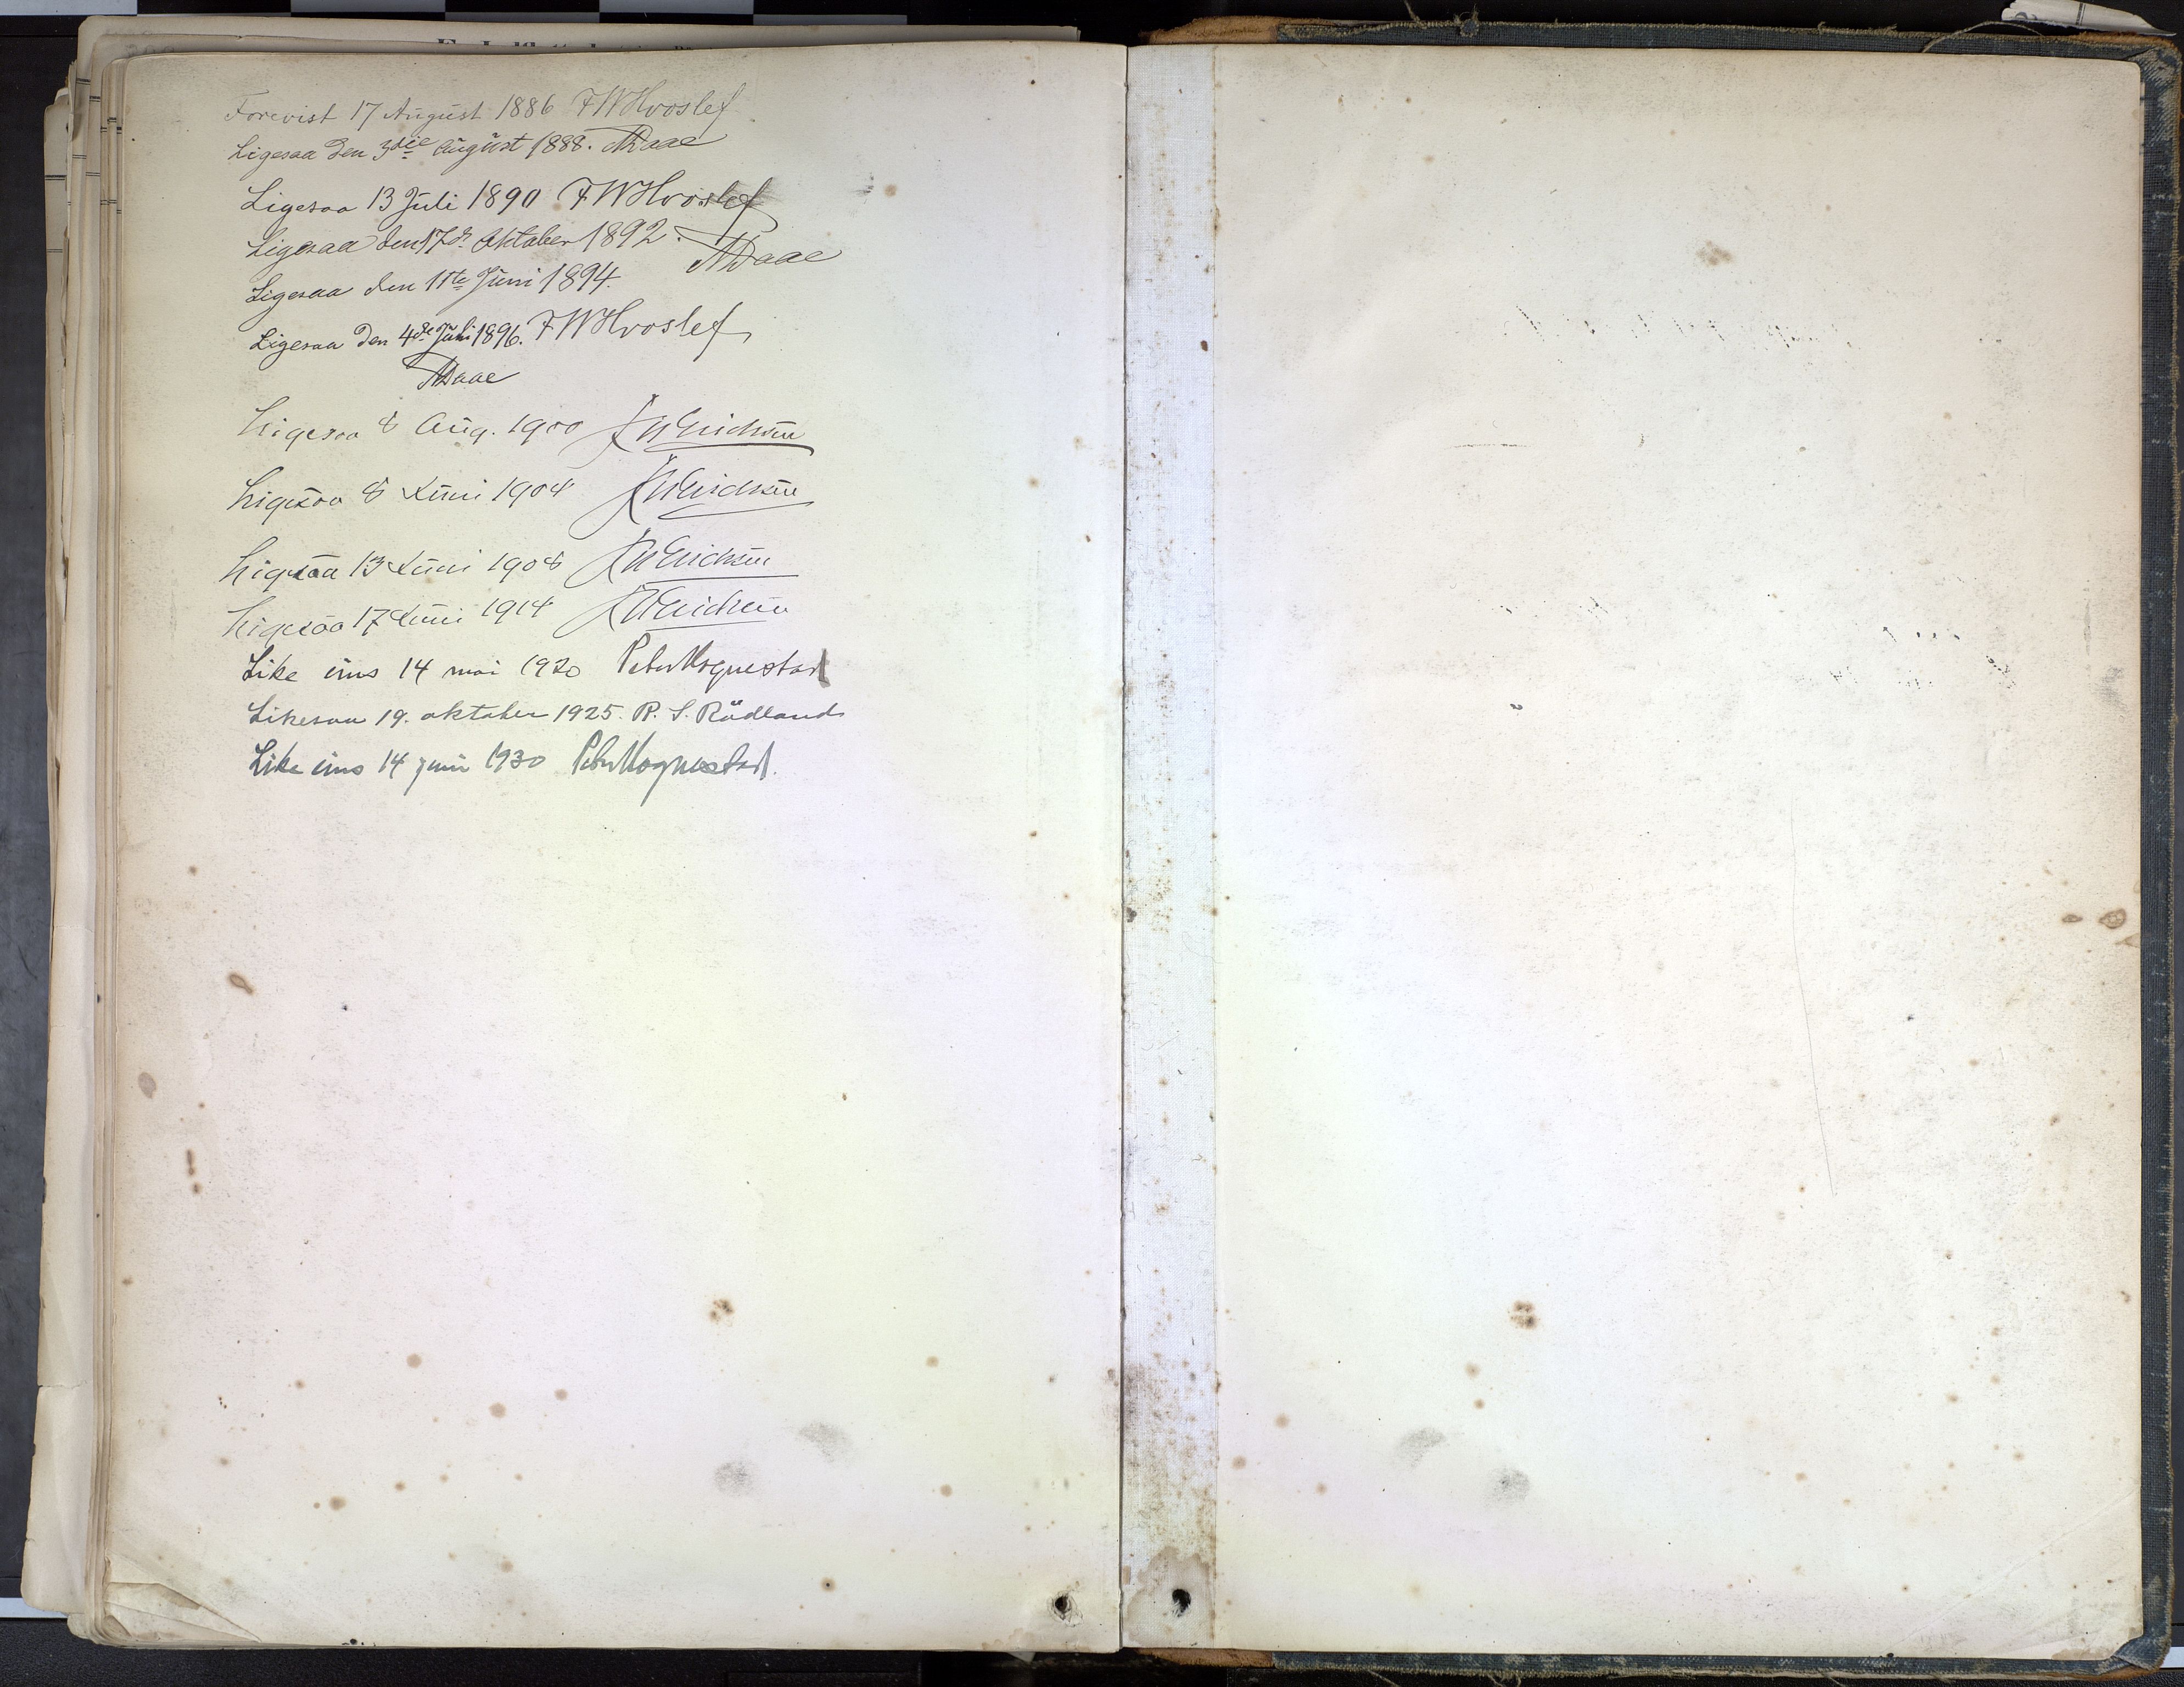 Forevist 17 August 1886 FWHvoslef
Ligesaa den 3die August 1888. ADaae
Ligesaa 13 Juli 1890 FWHvoslef
Ligesaa den 17de Oktober 1892. ADaae
Ligesaa den 11te Juni 1894. FWHvoslef
Ligesaa den 4de Juli 1896.
ADaae
Ligesaa 8 Aug. 1900 Erichsen
Ligesaa 8 Juni 1904 Erichsen
Ligesaa 13 Juni 1908 Erichsen
Ligesaa 17 Juni 1914 Erichsen
Like eins 14 mai 1920 Peter Hognestad
Likesaa 19. oktober 1925. P. S. Rödland
Like eins 14 juni 1930 Peter Hognestad.